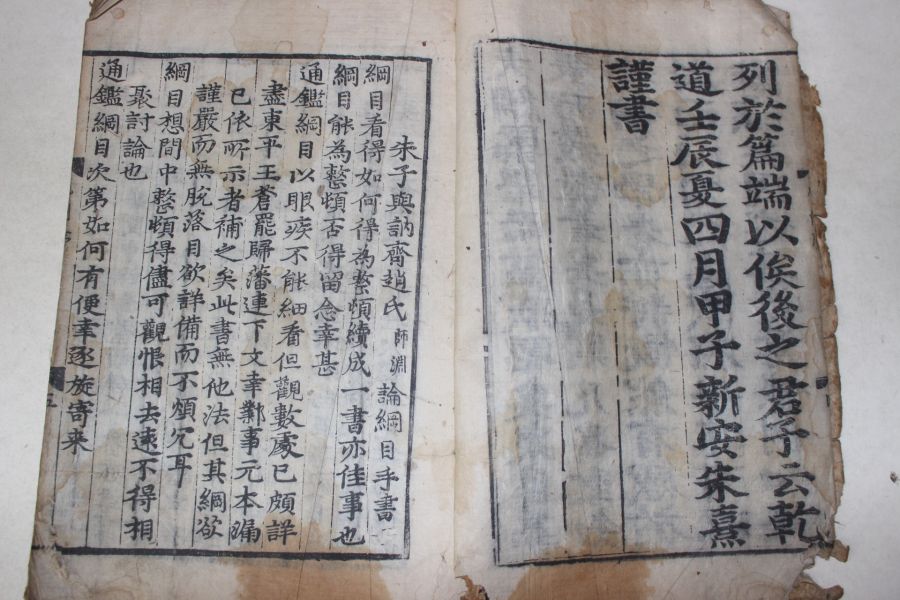 列於篇端以俟後之君子云乾
道壬辰夏四月甲子新安朱熹
謹書
朱子與訥齋趙氏師淵論綱目手書
綱目看得如何得為整頓續成一書亦佳事也
綱目能為整頓否得留念幸甚
通鑑綱目以眼疾不能細看但觀數處已頗詳
盡東平王蒼罷歸藩連下文幸鄴事元本漏
已依所示者補之矣此書無他法但其綱欲
謹嚴而無脫落目欲詳備而不煩冗耳
綱目想間中整頓得儘可觀恨相去遠不得相
聚討論也
通鑑綱目次第如何有便幸逐旋寄来